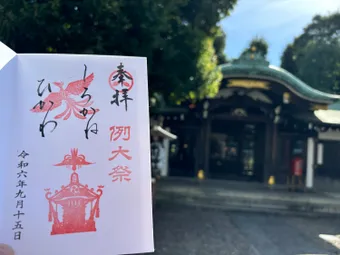 奉拝
例大祭
しろかね
ひかわ
令和六年九月十五日